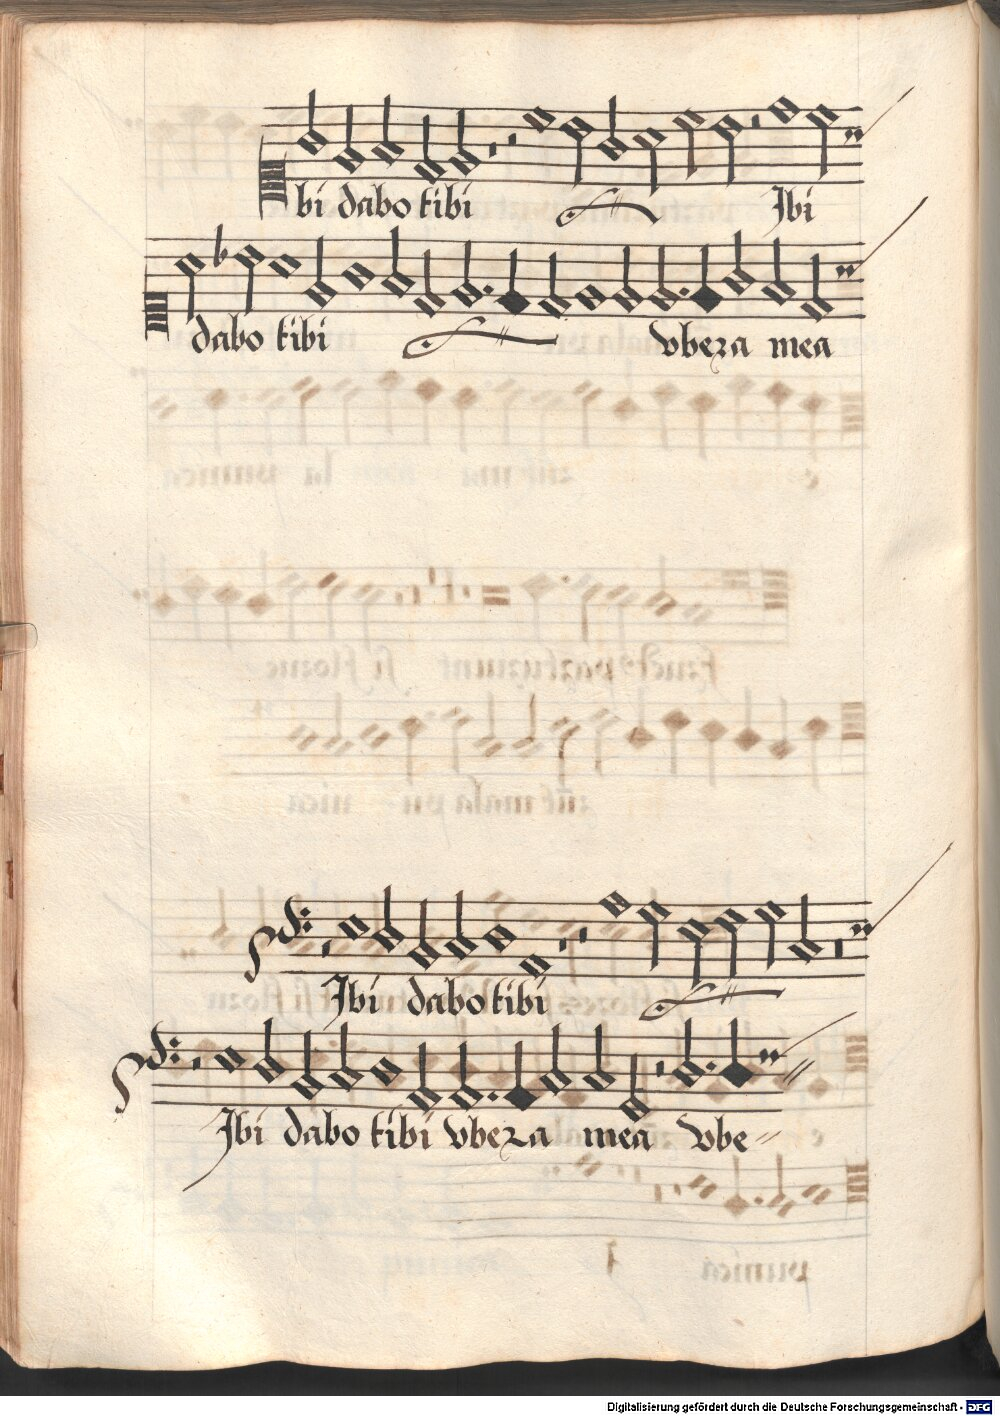 bi dabo tibi Ibi
dabo tibi vbera mea
Ibi dabo tibi
Ibi dabo tibi vbera mea vbe
Digitalisierung gefördert durch die Deutsche Forschungsgemeinschaft - DFG